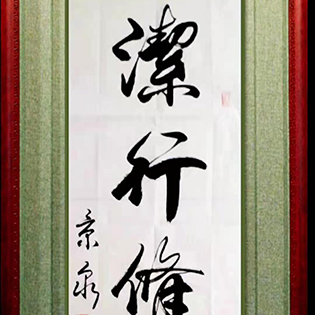 潔行脩
景泉